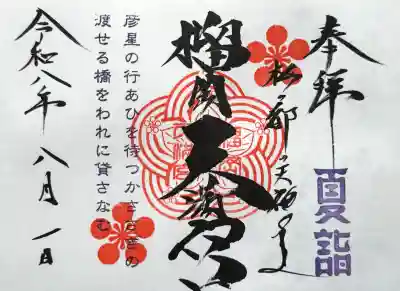 奉拝
夏詣
榴岡天満宮
彦星の行あひを待つかささぎの
渡せる橋をわれに貸さなむ
令和八年 八月 一日